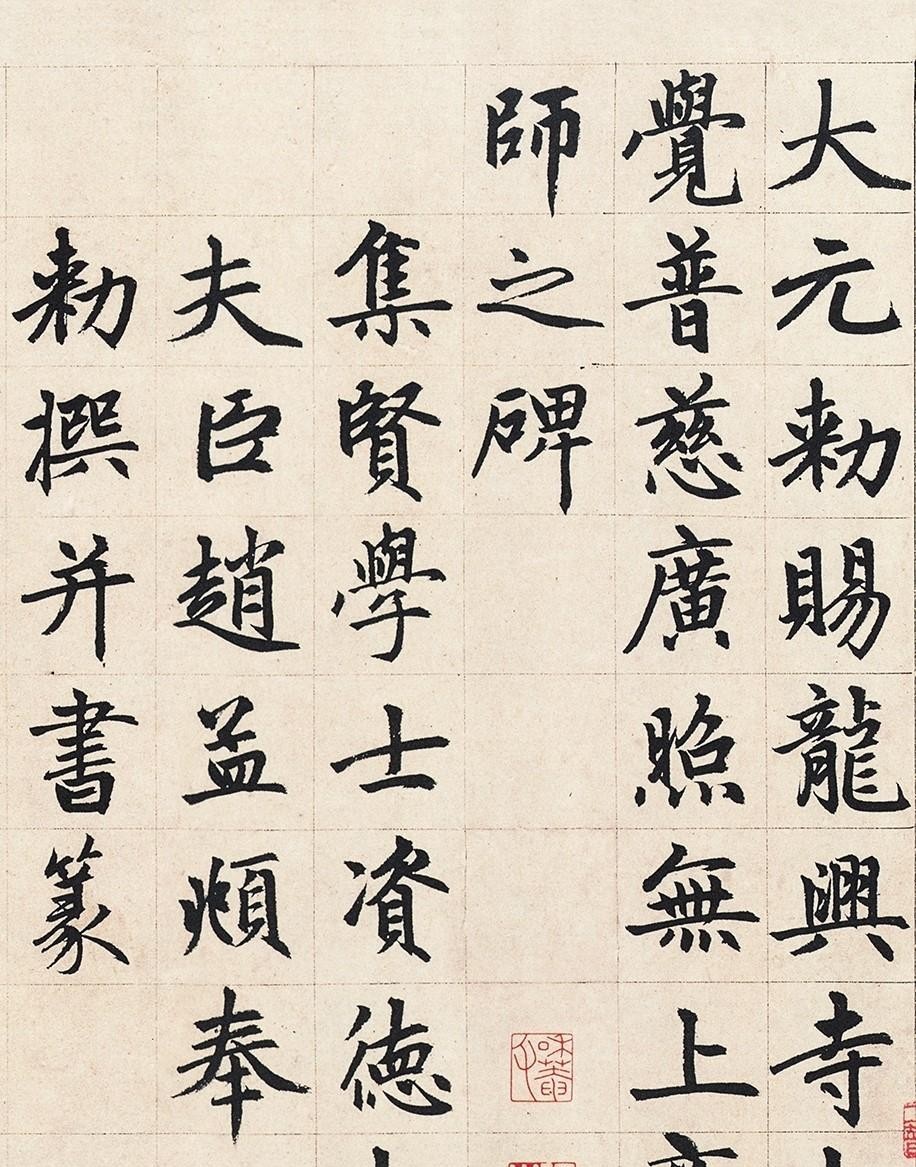 大元勑賜龍興寺
覺普慈廣照無上
師之碑
集賢學士資德
夫臣趙孟頫奉
勑撰并書篆